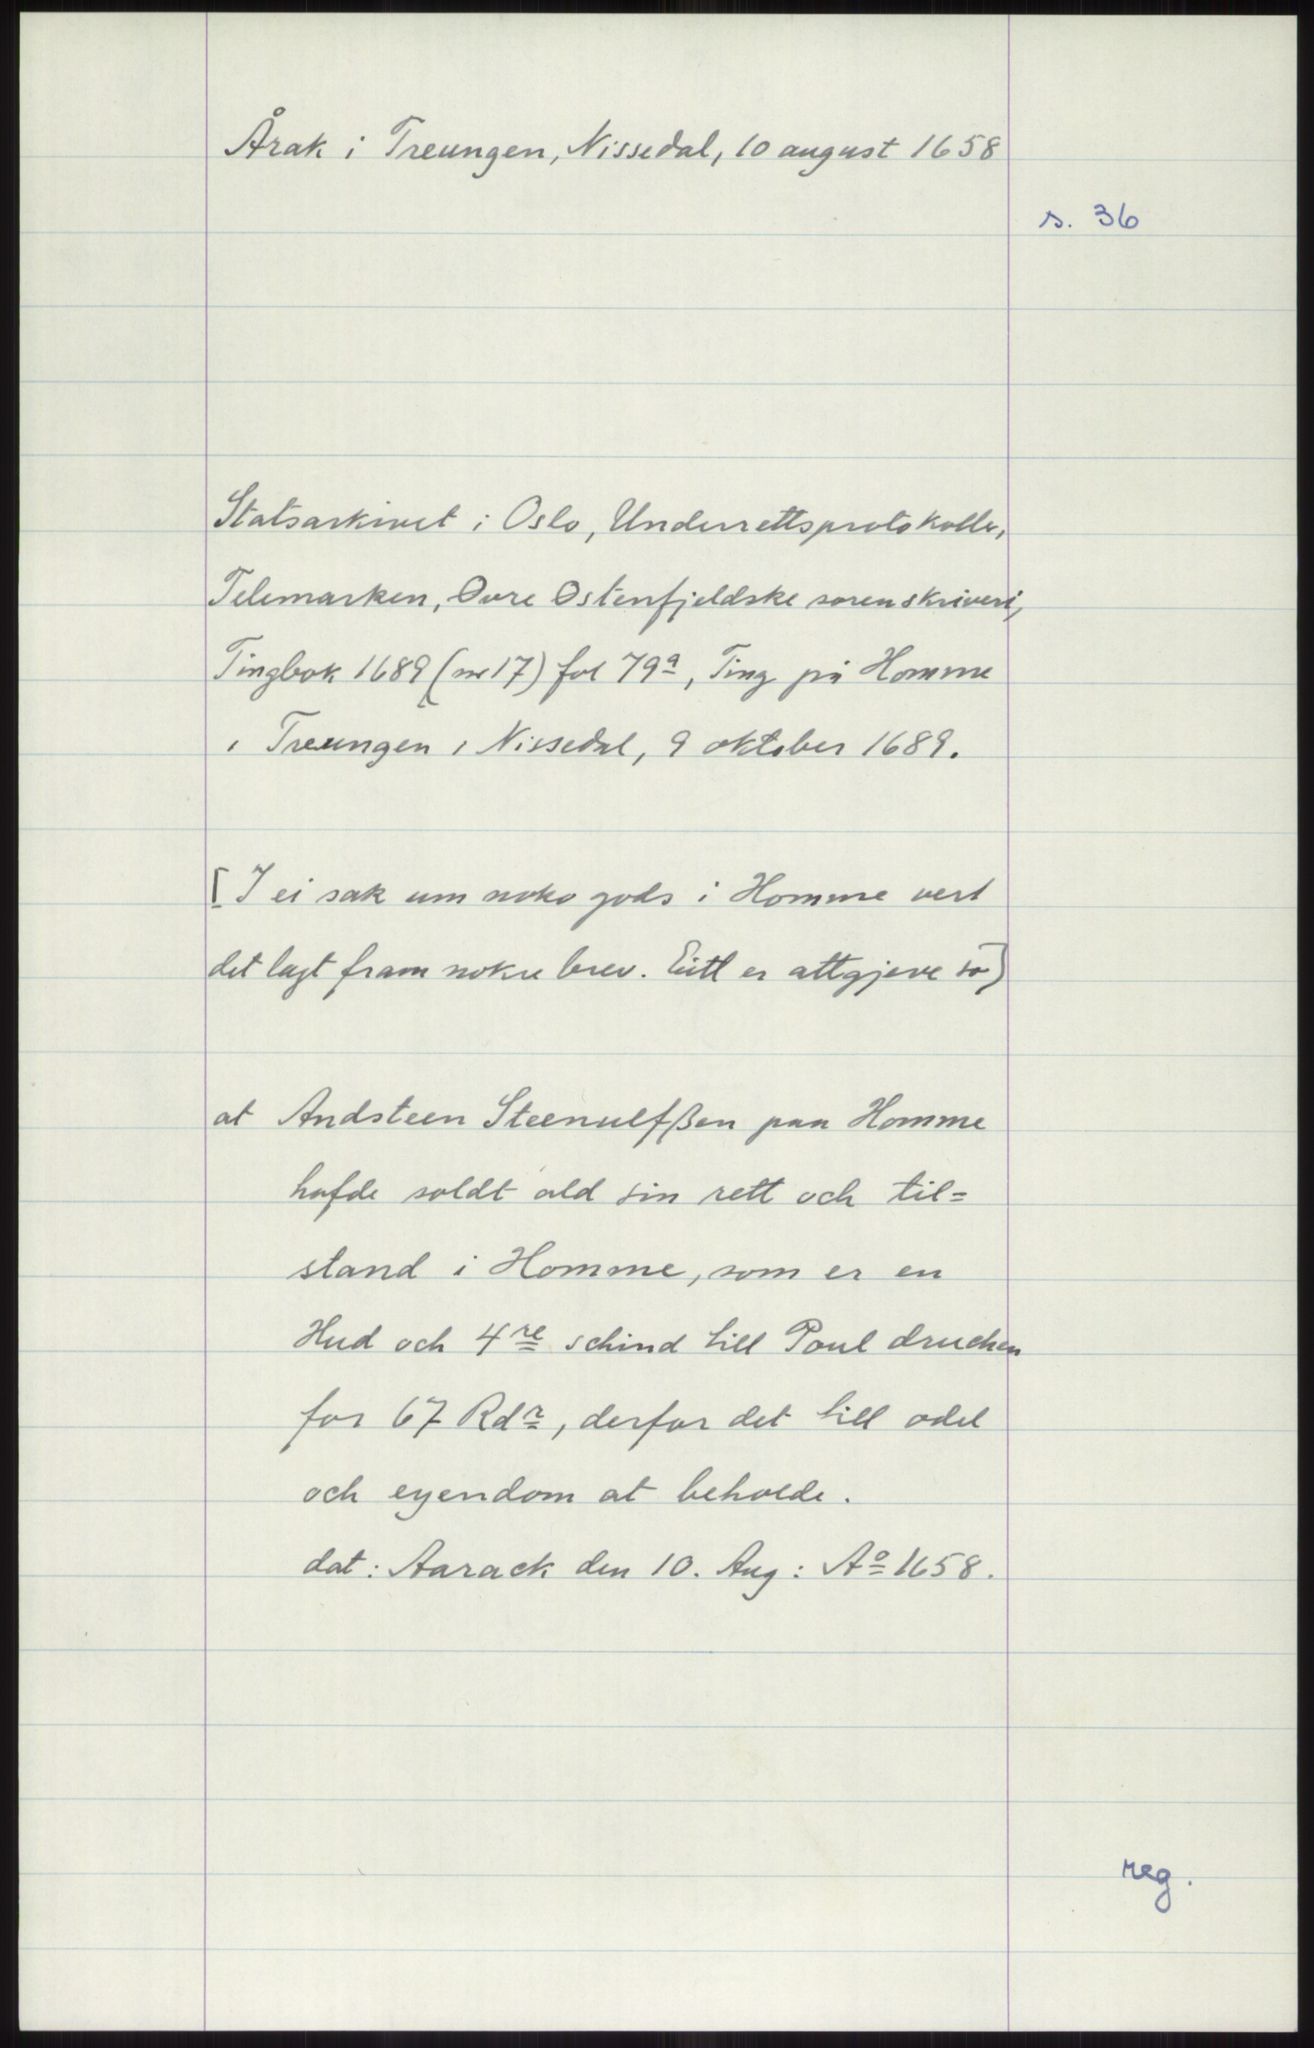 Årak i Treungen, Nissedal, 10 august 1658
s. 36
Statsarkivet i Oslo, Underrettsprotokoller,
Telemarken, Øvre Østenfjeldske sorenskriveri,
Tingbok 1689 (nr 17) fol 79ª, Ting på Homme
i Treungen i Nissedal, 9 oktober 1689.
[I ei sak um noko gods i Homme vert
det lagt fram nokre brev. Eitt er attgjeve so]
at Andsteen Steenulfßen paa Homme
hafde soldt ald sin rett och til=
stand i Homme, som er en
Hud och 4re schind till Poul druchen
for 67 Rdr, derfor det till odel
och eyendom at beholde.
dat: Aarack den 10. Aug: Aº 1658.
reg.